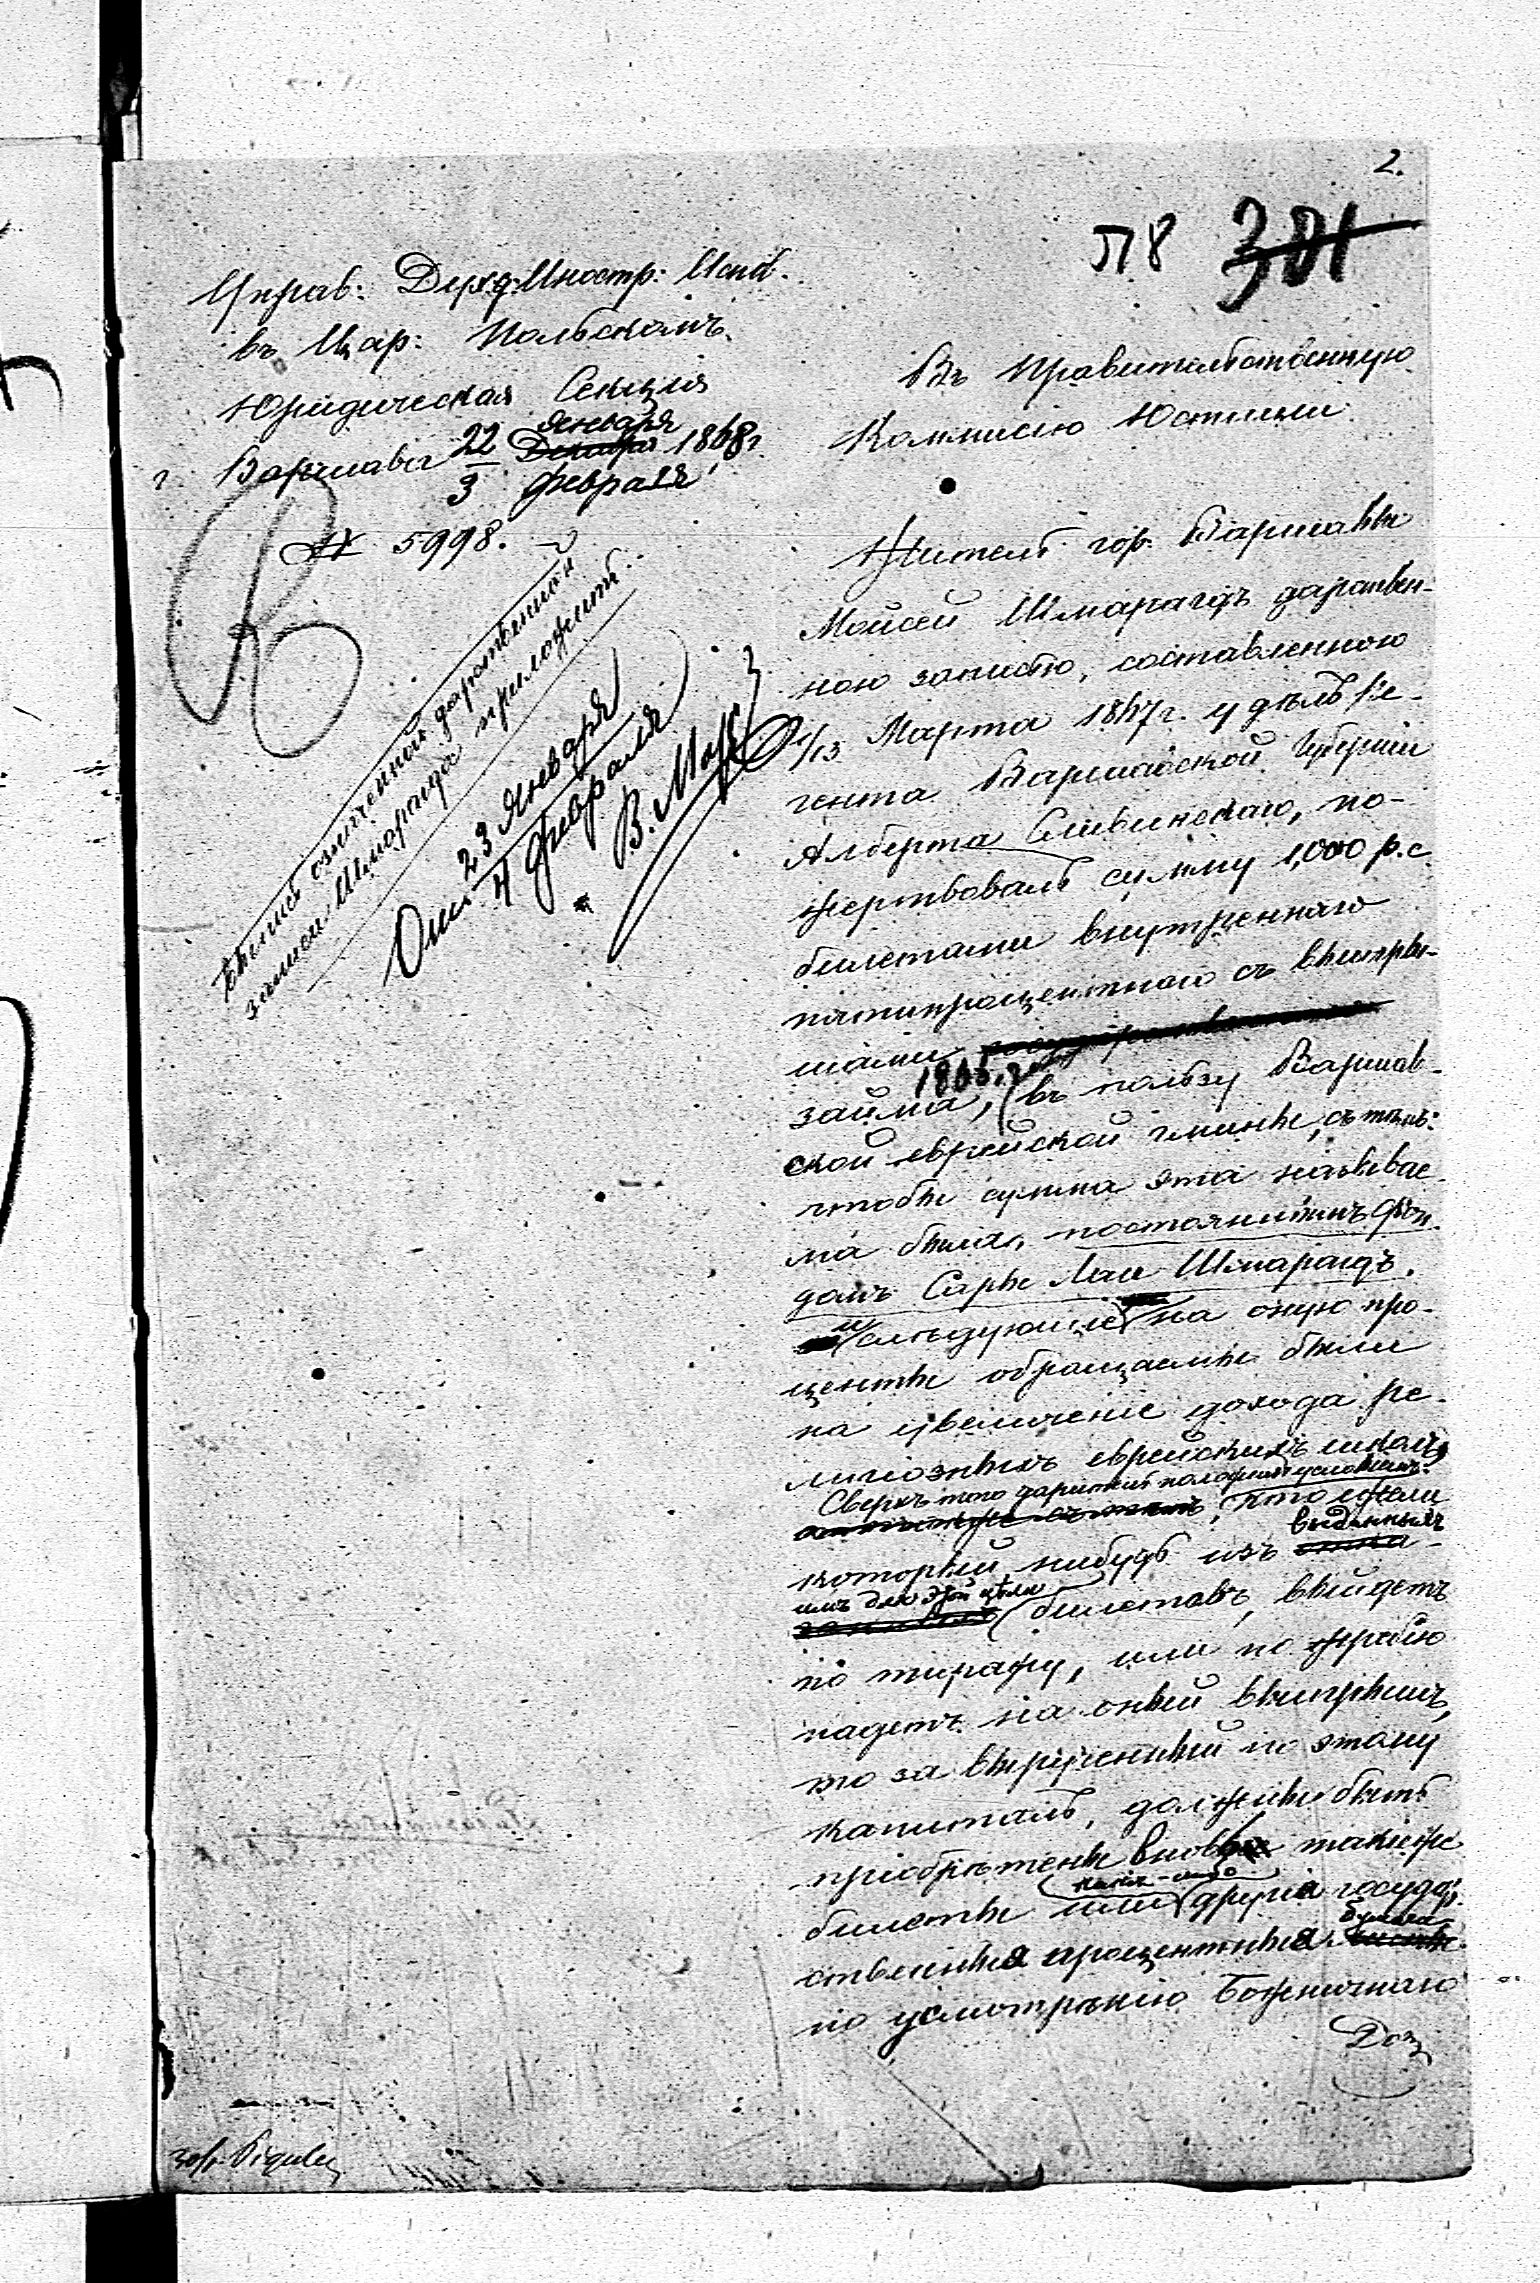 2.
П8 381
Управ: Дух.д. Иностр: Исп.
въ Цар: Польскомъ.
Юридическая Секція
Января
г. Варшава 22 Декабря 1868 г.
3 Февраля
№ 5998.
Выпись означенной дарственной
записи Шмарагда приложить.
23 Января
4 Февраля
Въ Правительственную
Коммисію Юстиціи
Житель гор. Варшавы
Мойсей Шмарагдъ дарствен-
ною записью, составленною
1/13 Марта 1867 г. у дѣлъ Ре-
гента Варшавской Губерніи
Алберта Сливинскаго, по-
жертвовалъ сумму 1,000 р. с.
билетами внутренняго
пятипроцентнаго съ выигры-
шами государственнаго
1865 г.
займа, въ пользу Варшав-
ской еврейской гмины, съ тѣмъ:
чтобы сумма эта называе-
ма была, постояннымъ фон-
домъ Сары Лаи Шмарагдъ,
и слѣдующіе на оную про-
центы обращаемы были
на увеличеніе дохода ре-
лигіозныхъ еврейскихъ школъ,
Сверхъ того даритель положилъ условіемъ:
что ежели
выданныхъ
который нибудь изъ
имъ для этой цѣли
билетовъ, выйдетъ
по тиражу, или по жребію
падетъ на оный выигрышъ,
то за вырученный по этому
капиталъ, должны быть
пріобрѣтены вновь такіеже
какія-либо
билеты или другія государ-
бумаги
ственныя процентныя листы
по усмотрѣнію Божничнаго
Доз